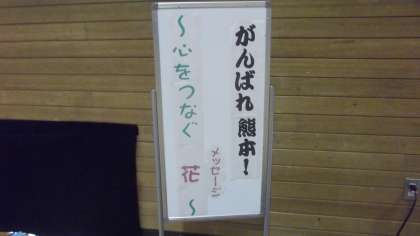 がんばれ 熊本!
メッセージ
～心をつなぐ 花～